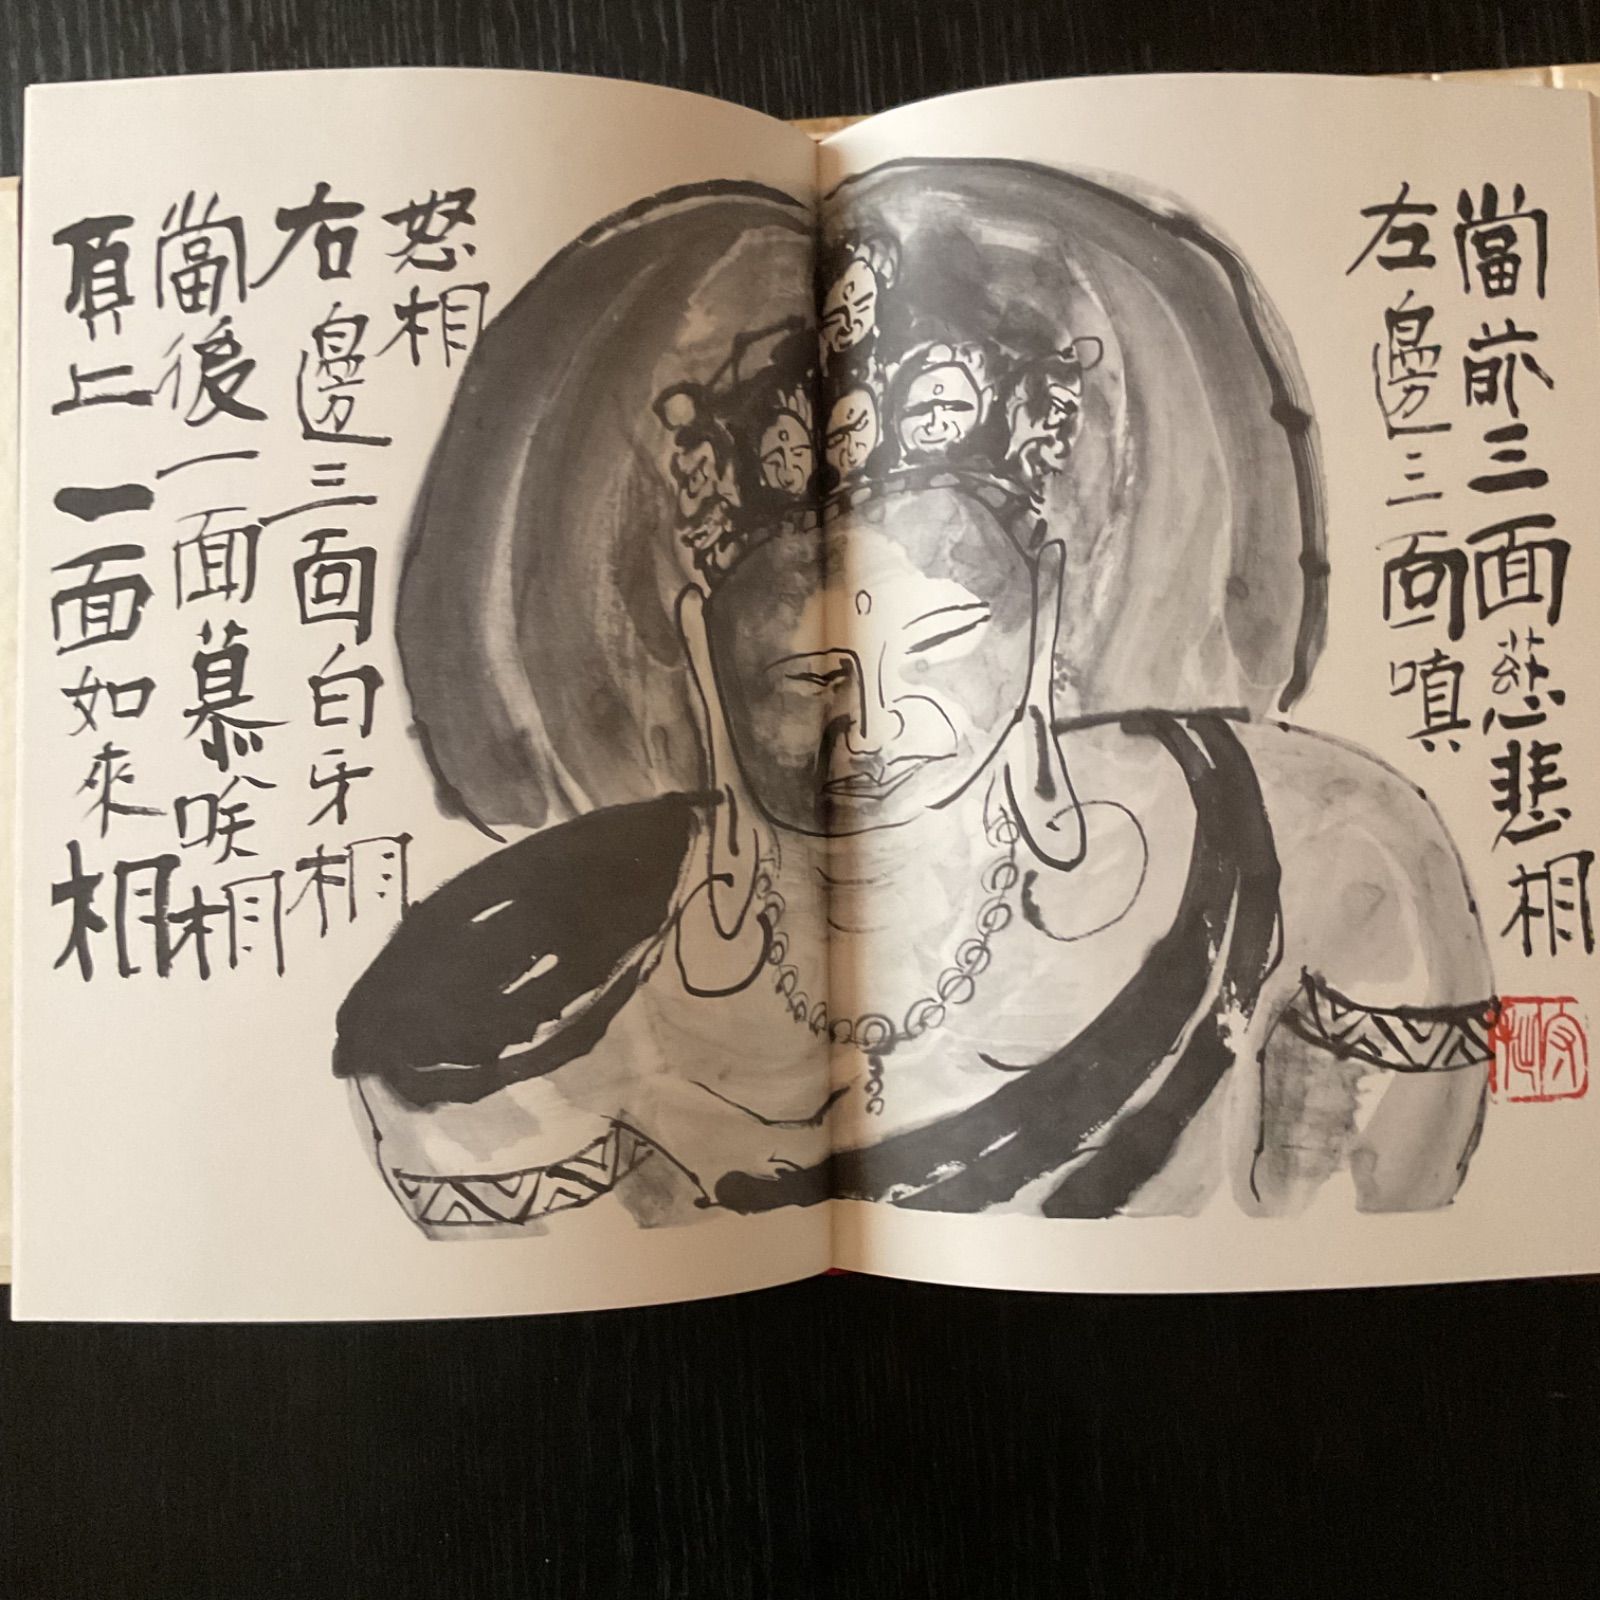 當前三面慈悲相
左邊三面嗔
怒相
右邊三面白牙相
當後一面暴咲相
頂上一面如來相